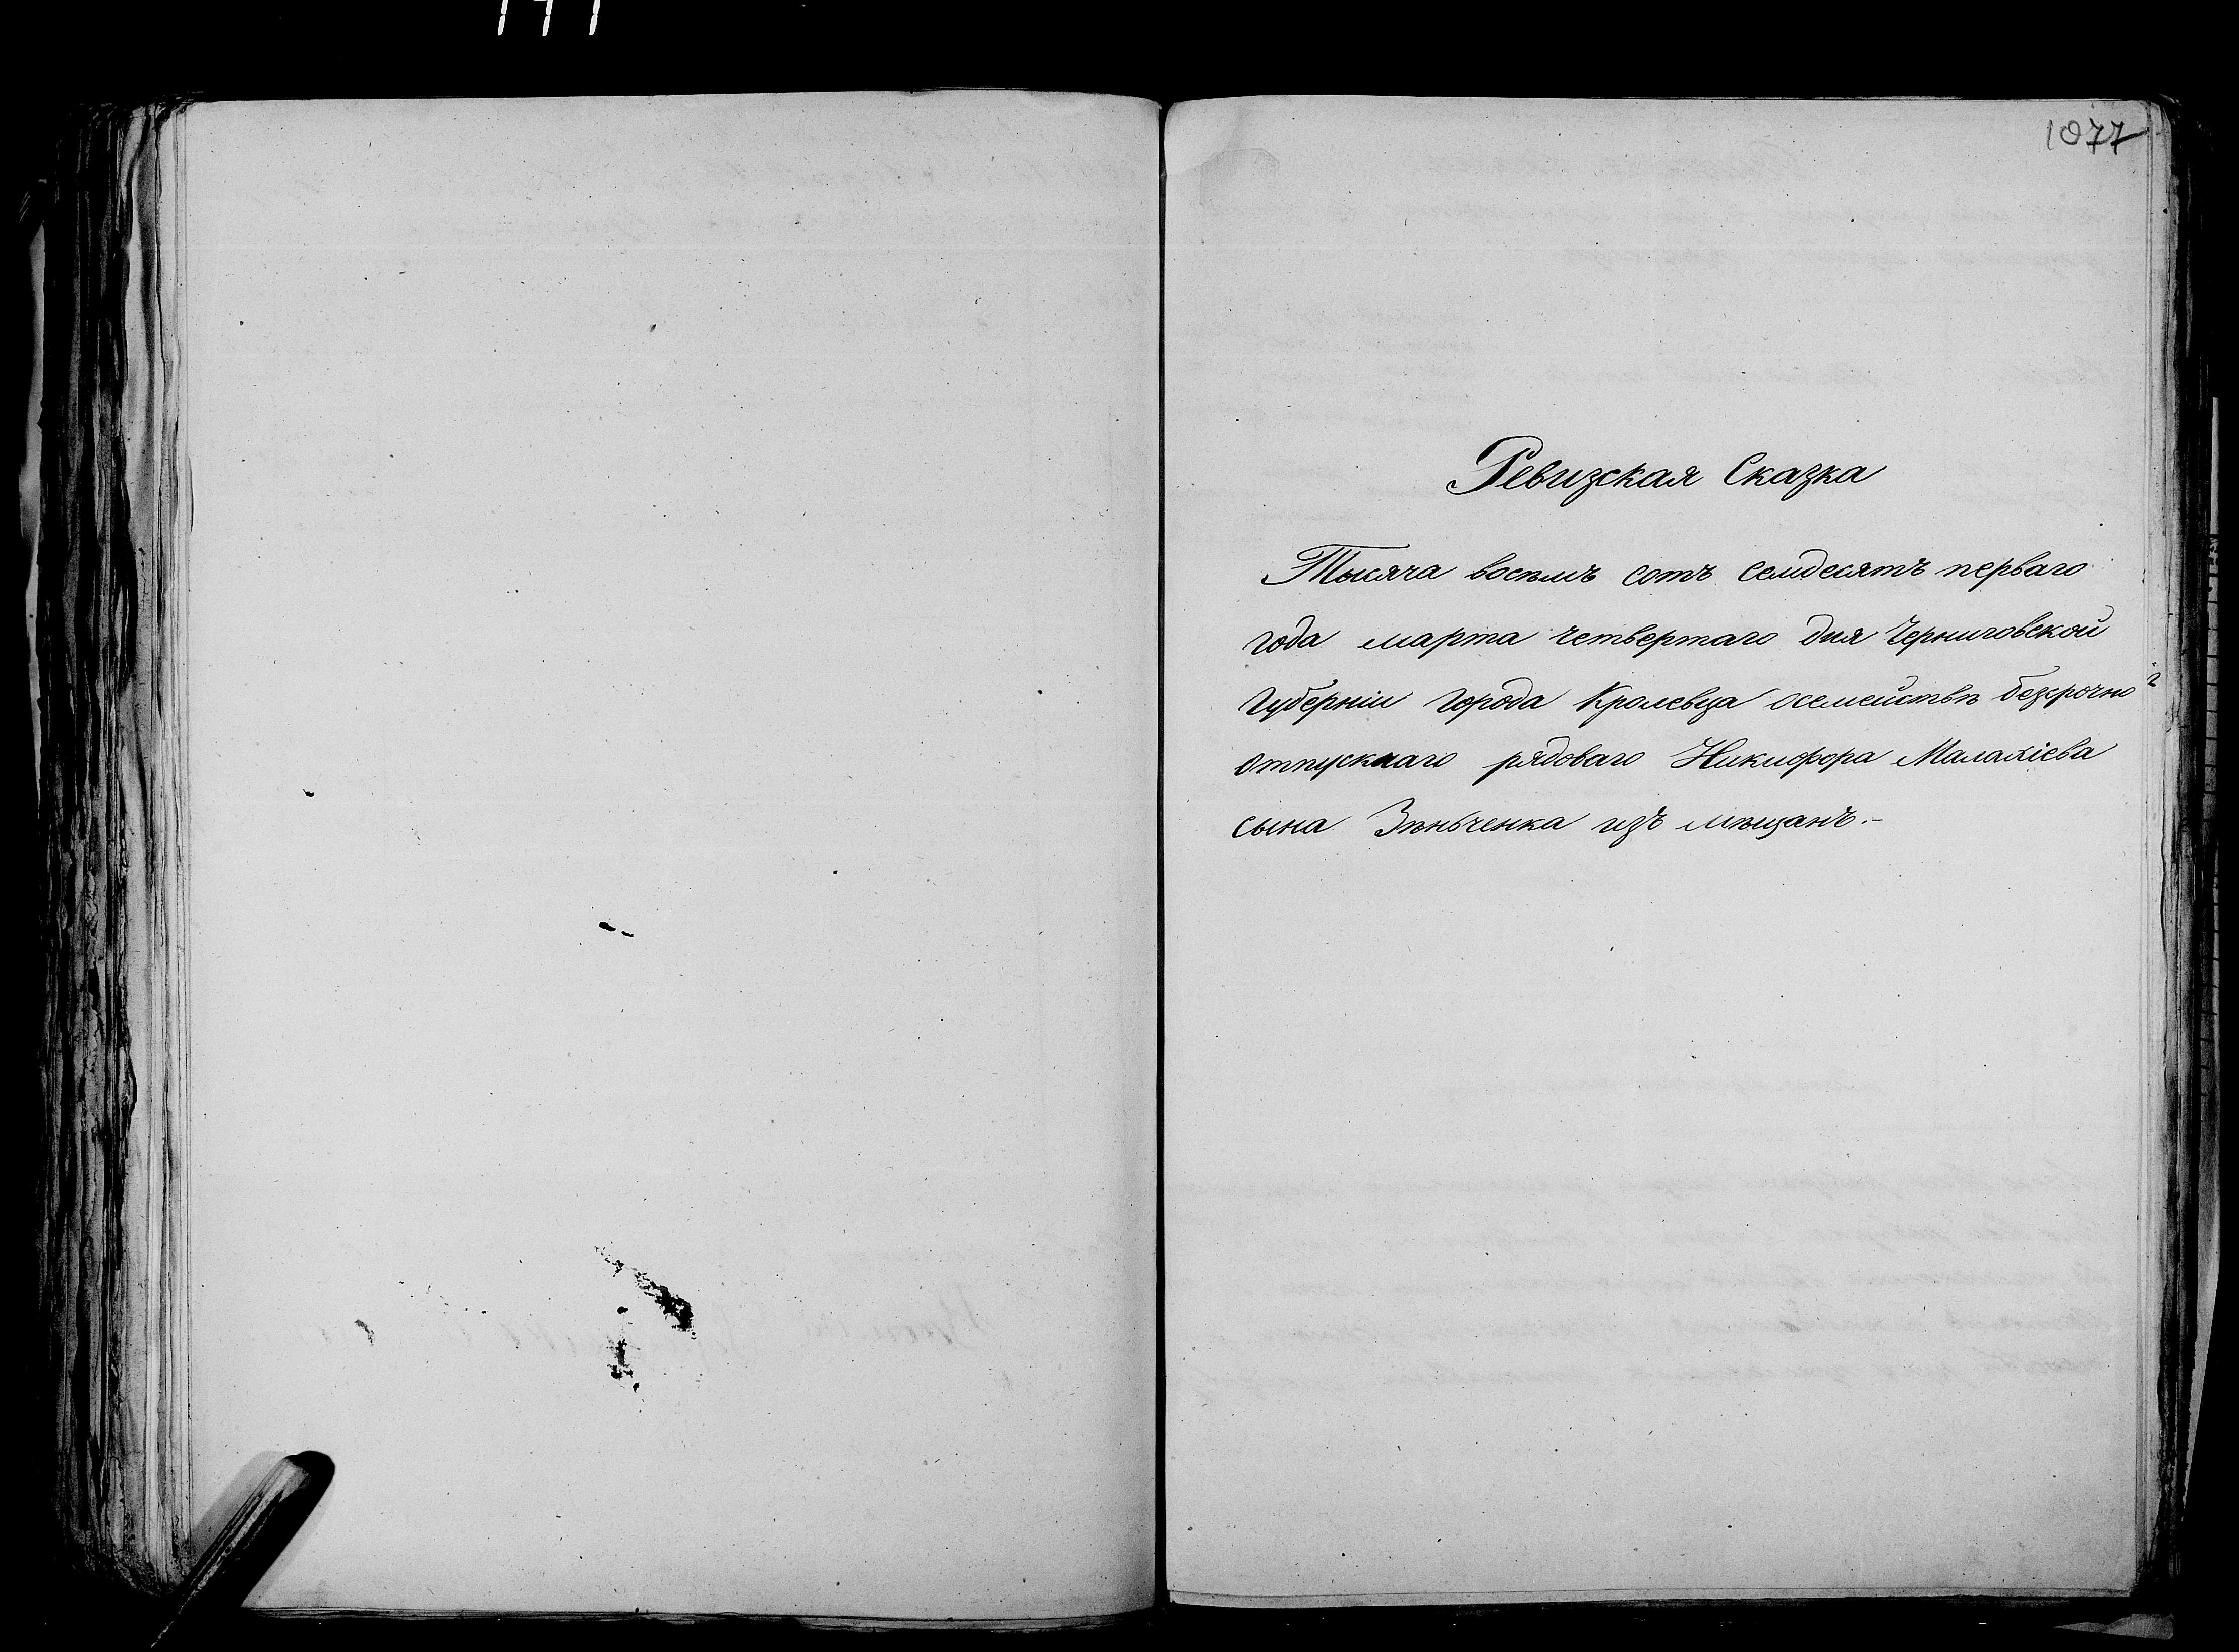 1077
Ревизская Сказка
Тысяча восѣмъ сотъ семдесятъ перваго
года марта четвертаго дня Черниговской
губерніи города Кролевца осемействѣ безсрочно
отпускнаго рядоваго Никифора Малахіева
сына Зѣньченка изъ мѣщанъ.-